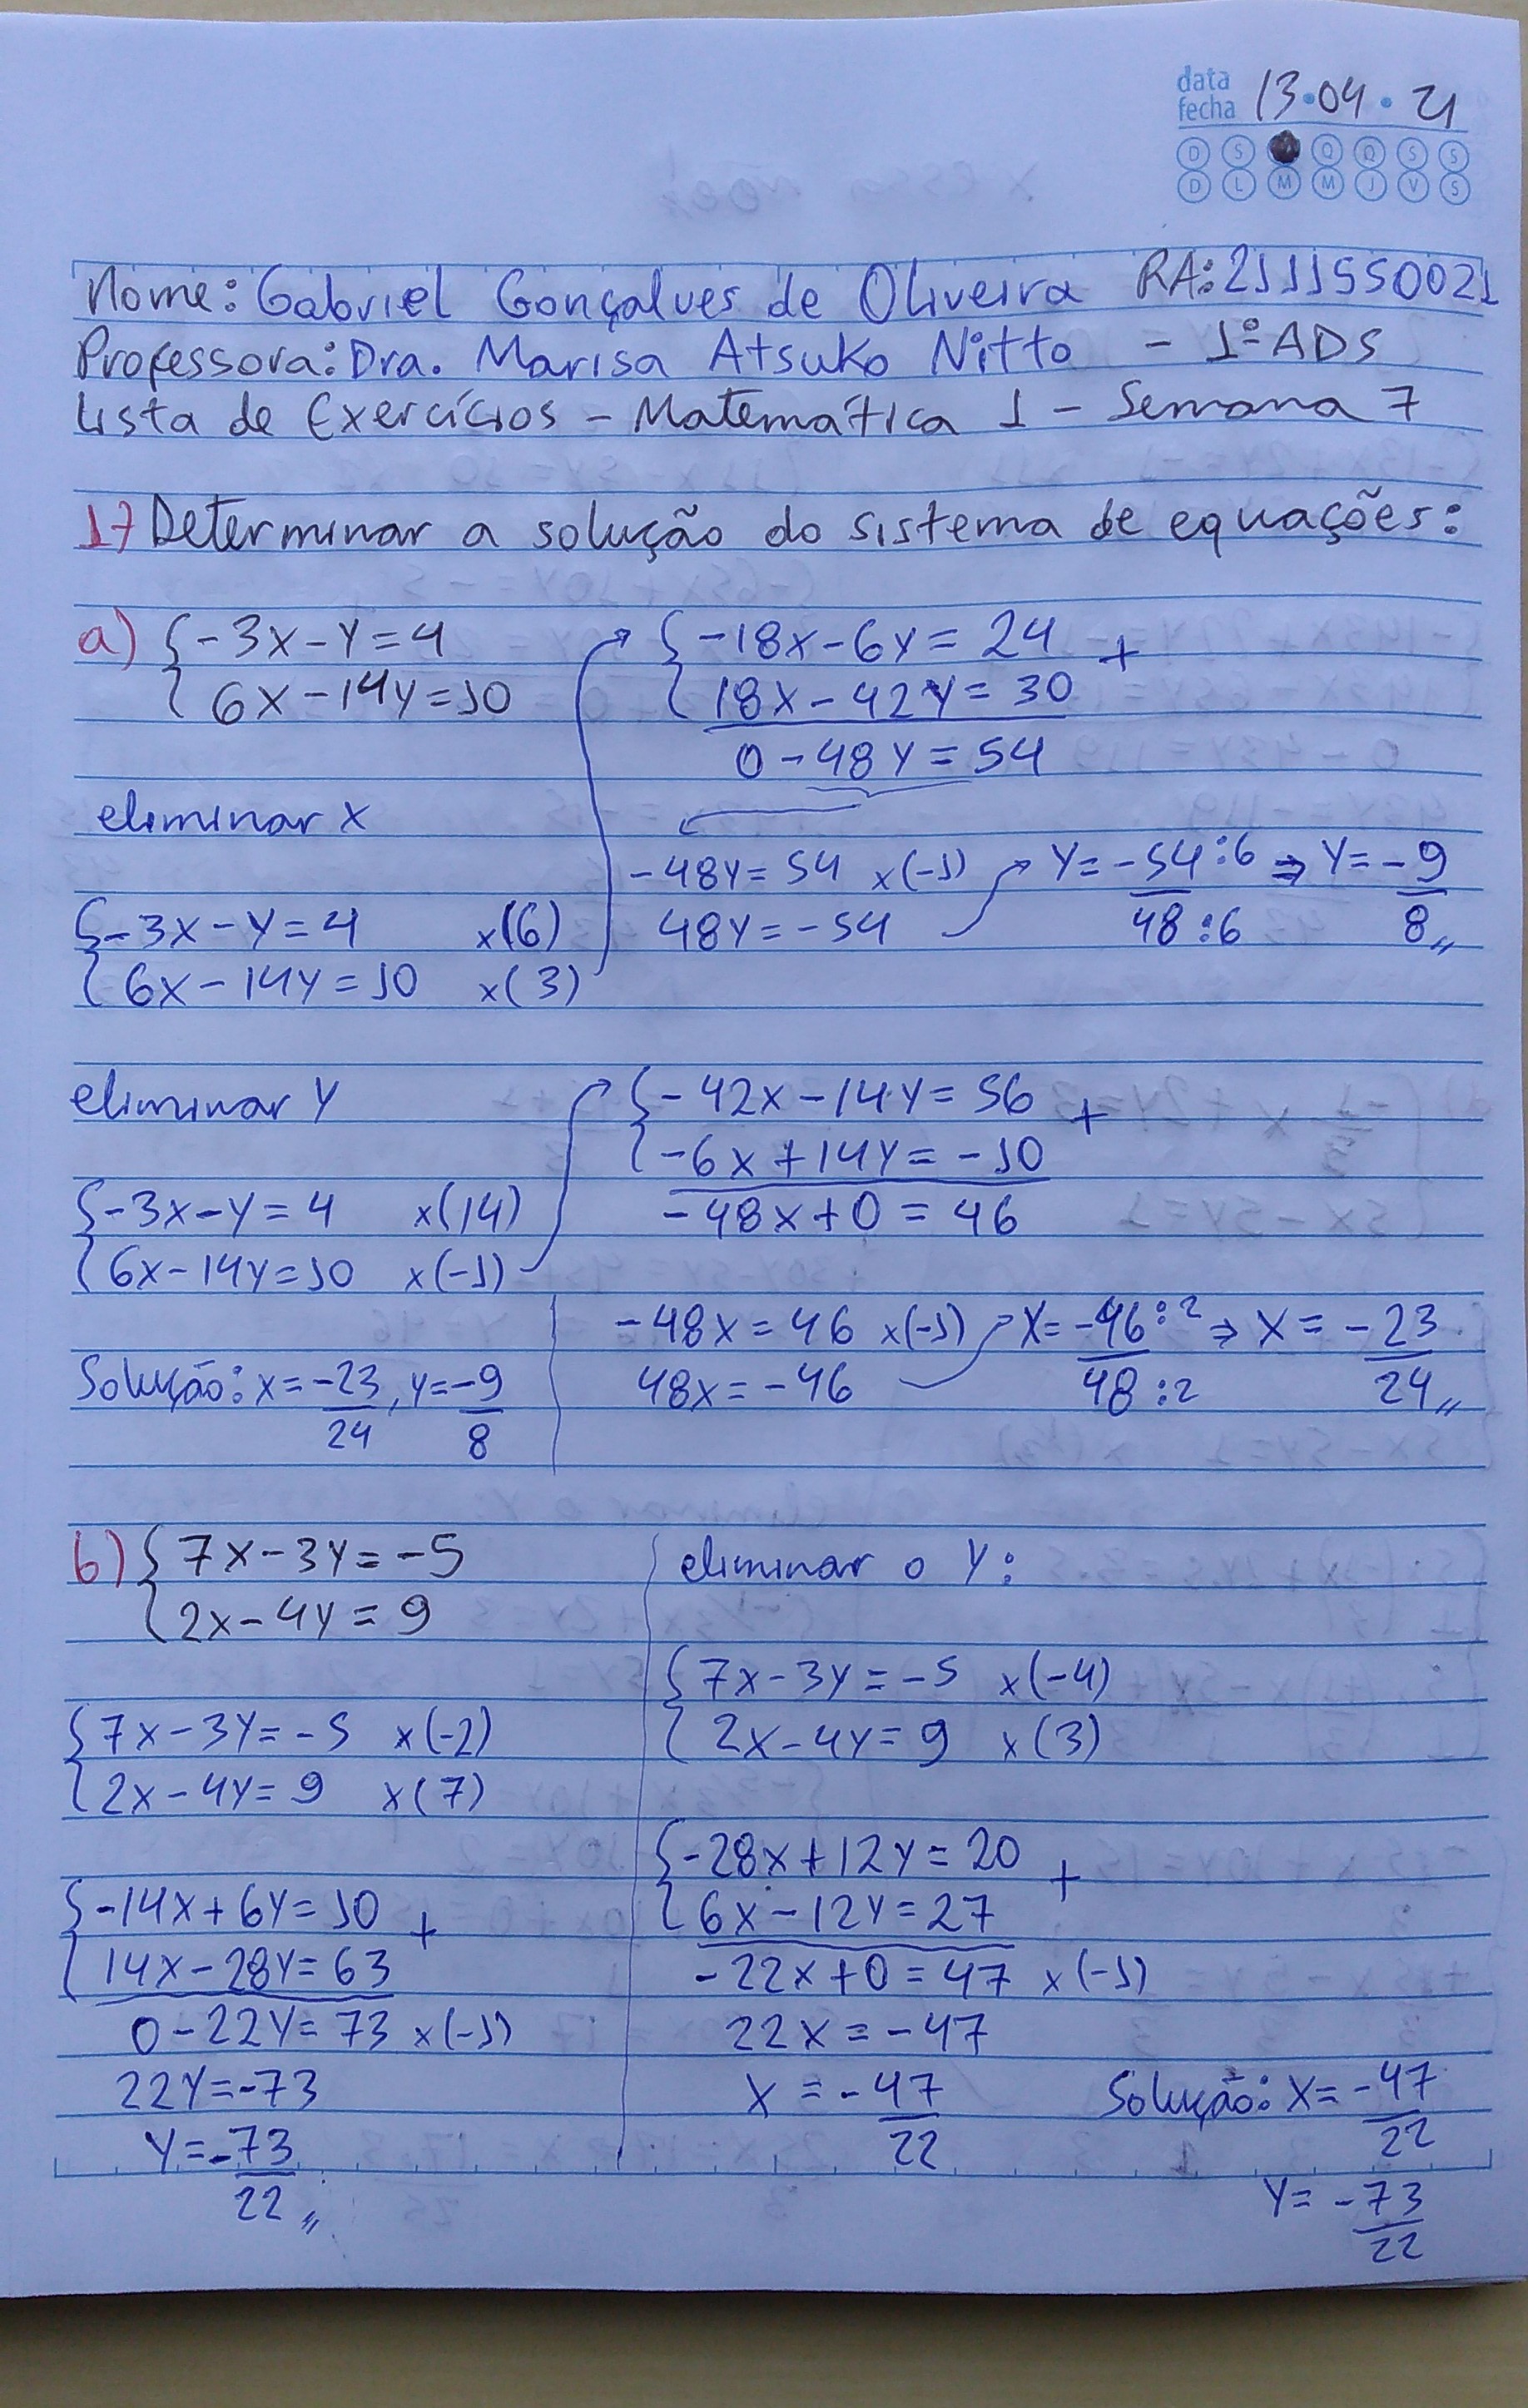 data
fecha 13·04·21
D S Q Q S S
D L M M J V S
Nome: Gabriel Gonçalves de Oliveira RA: 2111550021
Professora: Dra. Marisa Atsuko Nitto - 1º ADS
Lista de Exercícios - Matemática 1 - Semana 7
1) Determinar a solução do sistema de equações:
a) { -3x - y = 4
{ 6x - 14y = 10
{ -18x - 6y = 24 +
{ 18x - 42y = 30
0 - 48y = 54
eliminar x
{ -3x - y = 4 x(6)
{ 6x - 14y = 10 x(3)
-48y = 54 x(-1)
48y = -54
y = -54:6 / 48:6 ⇒ y = -9/8
eliminar y
{ -3x - y = 4 x(14)
{ 6x - 14y = 10 x(-1)
{ -42x - 14y = 56 +
{ -6x + 14y = -10
-48x + 0 = 46
-48x = 46 x(-1)
48x = -46
x = -46:2 / 48:2 ⇒ x = -23/24
Solução: x = -23/24, y = -9/8
b) { 7x - 3y = -5
{ 2x - 4y = 9
{ 7x - 3y = -5 x(-2)
{ 2x - 4y = 9 x(7)
{ -14x + 6y = 10 +
{ 14x - 28y = 63
0 - 22y = 73 x(-1)
22y = -73
y = -73/22
eliminar o y:
{ 7x - 3y = -5 x(-4)
{ 2x - 4y = 9 x(3)
{ -28x + 12y = 20 +
{ 6x - 12y = 27
-22x + 0 = 47 x(-1)
22x = -47
x = -47/22
Solução: x = -47/22
y = -73/22